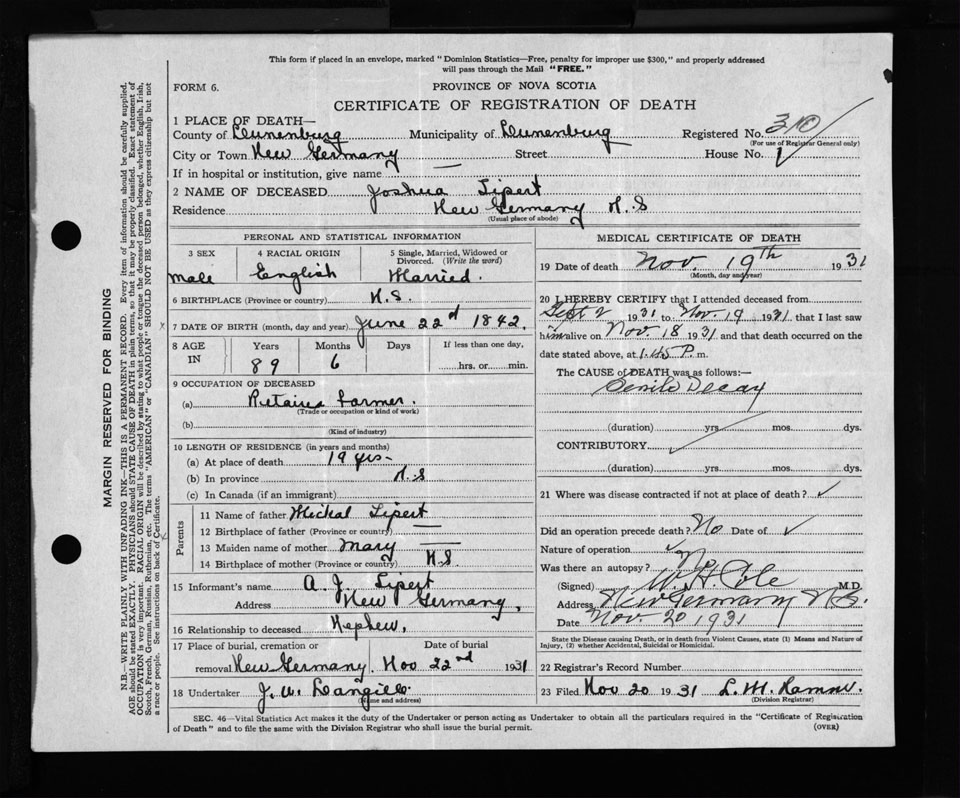 This form if placed in an envelope, marked "Dominion Statistics—Free, penalty for improper use $300," and properly addressed
will pass through the Mail "FREE."
FORM 6.
PROVINCE OF NOVA SCOTIA
CERTIFICATE OF REGISTRATION OF DEATH
1 PLACE OF DEATH—
County of Lunenburg Municipality of Lunenburg Registered No. 310
(For use of Registrar General only)
City or Town New Germany Street House No.
If in hospital or institution, give name —
2 NAME OF DECEASED Joshua Lipert
Residence New Germany N.S
(Usual place of abode)
PERSONAL AND STATISTICAL INFORMATION
3 SEX 4 RACIAL ORIGIN 5 Single, Married, Widowed or
Divorced. (Write the word)
Male English Married.
6 BIRTHPLACE (Province or country) N.S.
7 DATE OF BIRTH (month, day and year) June 22d 1842.
8 AGE IN Years Months Days If less than one day,
89 6 hrs. or min.
9 OCCUPATION OF DECEASED
(a) Retaired Farmer.
(Trade or occupation or kind of work)
(b)
(Kind of industry)
10 LENGTH OF RESIDENCE (in years and months)
(a) At place of death 19 yrs-
(b) In province N.S
(c) In Canada (if an immigrant)
Parents
11 Name of father Mickal Lipert
12 Birthplace of father (Province or country) —
13 Maiden name of mother Mary —
14 Birthplace of mother (Province or country) N.S
15 Informant's name A. J. Lipert
Address New Germany,
16 Relationship to deceased Nephew,
17 Place of burial, cremation or Date of burial
removal New Germany. Nov 22nd 1931
18 Undertaker J. W. Langille
(Name and address)
MEDICAL CERTIFICATE OF DEATH
19 Date of death Nov. 19th 1931
(Month, day and year)
20 I HEREBY CERTIFY that I attended deceased from
Sept 2 1931 to Nov 19 1931 that I last saw
him alive on Nov. 18 1931 and that death occurred on the
date stated above, at 1.45 P. m.
The CAUSE of DEATH was as follows:—
Senile Decay
(duration) yrs. mos. dys.
CONTRIBUTORY.
(duration) yrs. mos. dys.
21 Where was disease contracted if not at place of death?
Did an operation precede death? No Date of
Nature of operation
Was there an autopsy? No
(Signed) W. H. Cole M.D.
Address New Germany N.S.
Date Nov. 20 1931
State the Disease causing Death, or in death from Violent Causes, state (1) Means and Nature of
Injury, (2) whether Accidental, Suicidal or Homicidal.
22 Registrar's Record Number
23 Filed Nov 20 1931 L. M.
(Division Registrar)
SEC. 46—Vital Statistics Act makes it the duty of the Undertaker or person acting as Undertaker to obtain all the particulars required in the "Certificate of Registration
of Death" and to file the same with the Division Registrar who shall issue the burial permit.
(OVER)
MARGIN RESERVED FOR BINDING
N.B.—WRITE PLAINLY WITH UNFADING INK—THIS IS A PERMANENT RECORD. Every item of information should be carefully supplied.
AGE should be stated EXACTLY. PHYSICIANS should STATE CAUSE OF DEATH in plain terms, so that it may be properly classified. Exact statement of
OCCUPATION is very important. RACIAL ORIGIN will be described by stating to what people or tongue the deceased person belonged, whether English, Irish,
Scotch, French, German, Russian, Ruthenian, etc. The terms "AMERICAN" or "CANADIAN" SHOULD NOT BE USED as they express citizenship but not
a race or people. See instructions on back of Certificate.